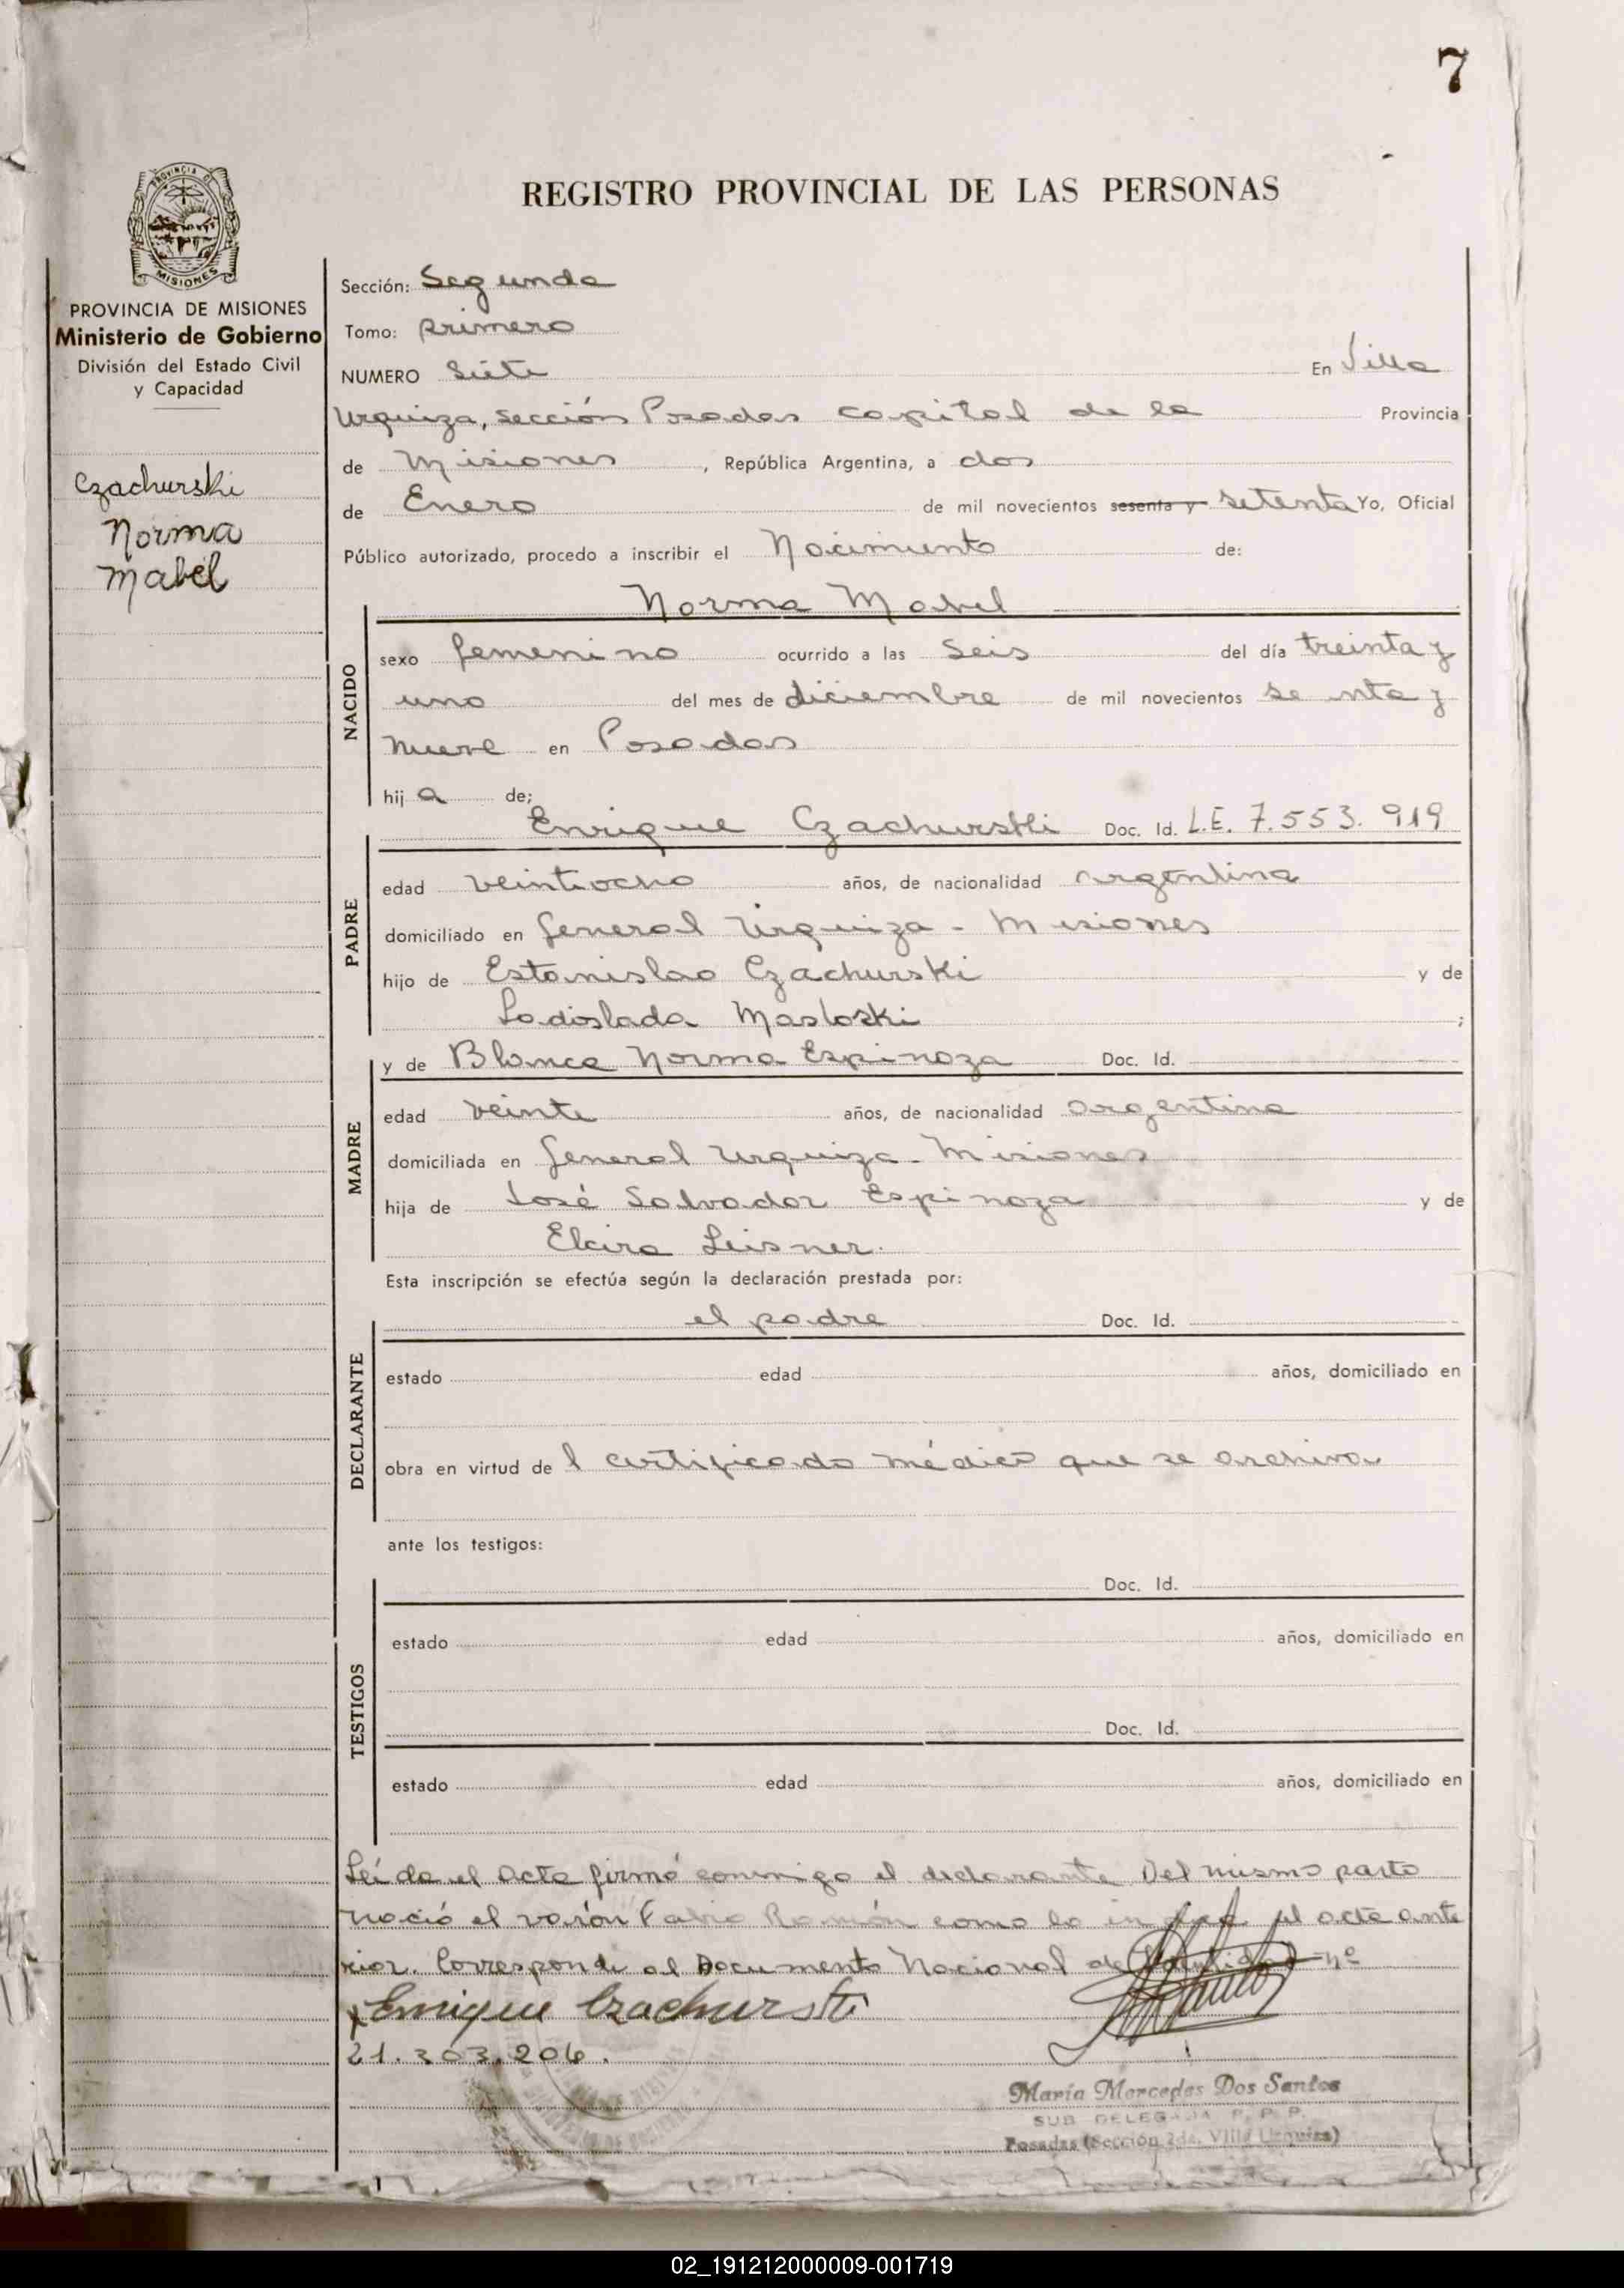 7
REGISTRO PROVINCIAL DE LAS PERSONAS
PROVINCIA DE
MISIONES
PROVINCIA DE MISIONES
Ministerio de Gobierno
División del Estado Civil
y Capacidad
Czachurski
Norma
Mabel
Sección: Segunda
Tomo: primero
NUMERO Siete En Villa
Urquiza, sección Posadas capital de la Provincia
de Misiones, República Argentina, a dos
de Enero de mil novecientos sesenta y setenta Yo, Oficial
Público autorizado, procedo a inscribir el Nacimiento de:
Norma Mabel
NACIDO
sexo femenino ocurrido a las Seis del día treinta y
uno del mes de diciembre de mil novecientos se nta y
nueve en Posadas
hij a de;
Enrique Czachurski Doc. Id. L.E. 7.553.919
PADRE
edad veintiocho años, de nacionalidad argentina
domiciliado en General Urquiza - Misiones
hijo de Estanislao Czachurski y de
Ladislada Masloski ;
y de Blanca Norma Espinoza Doc. Id.
MADRE
edad veinte años, de nacionalidad argentina
domiciliada en General Urquiza - Misiones
hija de José Salvador Espinoza y de
Elcira Leisner.
Esta inscripción se efectúa según la declaración prestada por:
el padre Doc. Id.
DECLARANTE
estado edad años, domiciliado en
obra en virtud de l certificado médico que se archiva
ante los testigos:
Doc. Id.
TESTIGOS
estado edad años, domiciliado en
Doc. Id.
estado edad años, domiciliado en
Leída el acta firmó conmigo el declarante Del mismo parto
nació el varón Fabio Ramón como lo indica el acta ante
rior. Corresponde al Documento Nacional de Identidad nº
x Enrique Czachurski
21.303.206.
María Mercedes Dos Santos
SUB DELEGADA R. P. P.
Posadas (Sección 2da. Villa Urquiza)
02_191212000009-001719